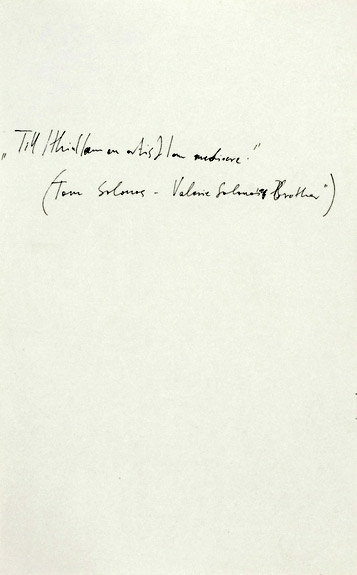 „Till I think I am an artist I am mediocre."
(Tom Solonas - Valerie Solonas's Brother")